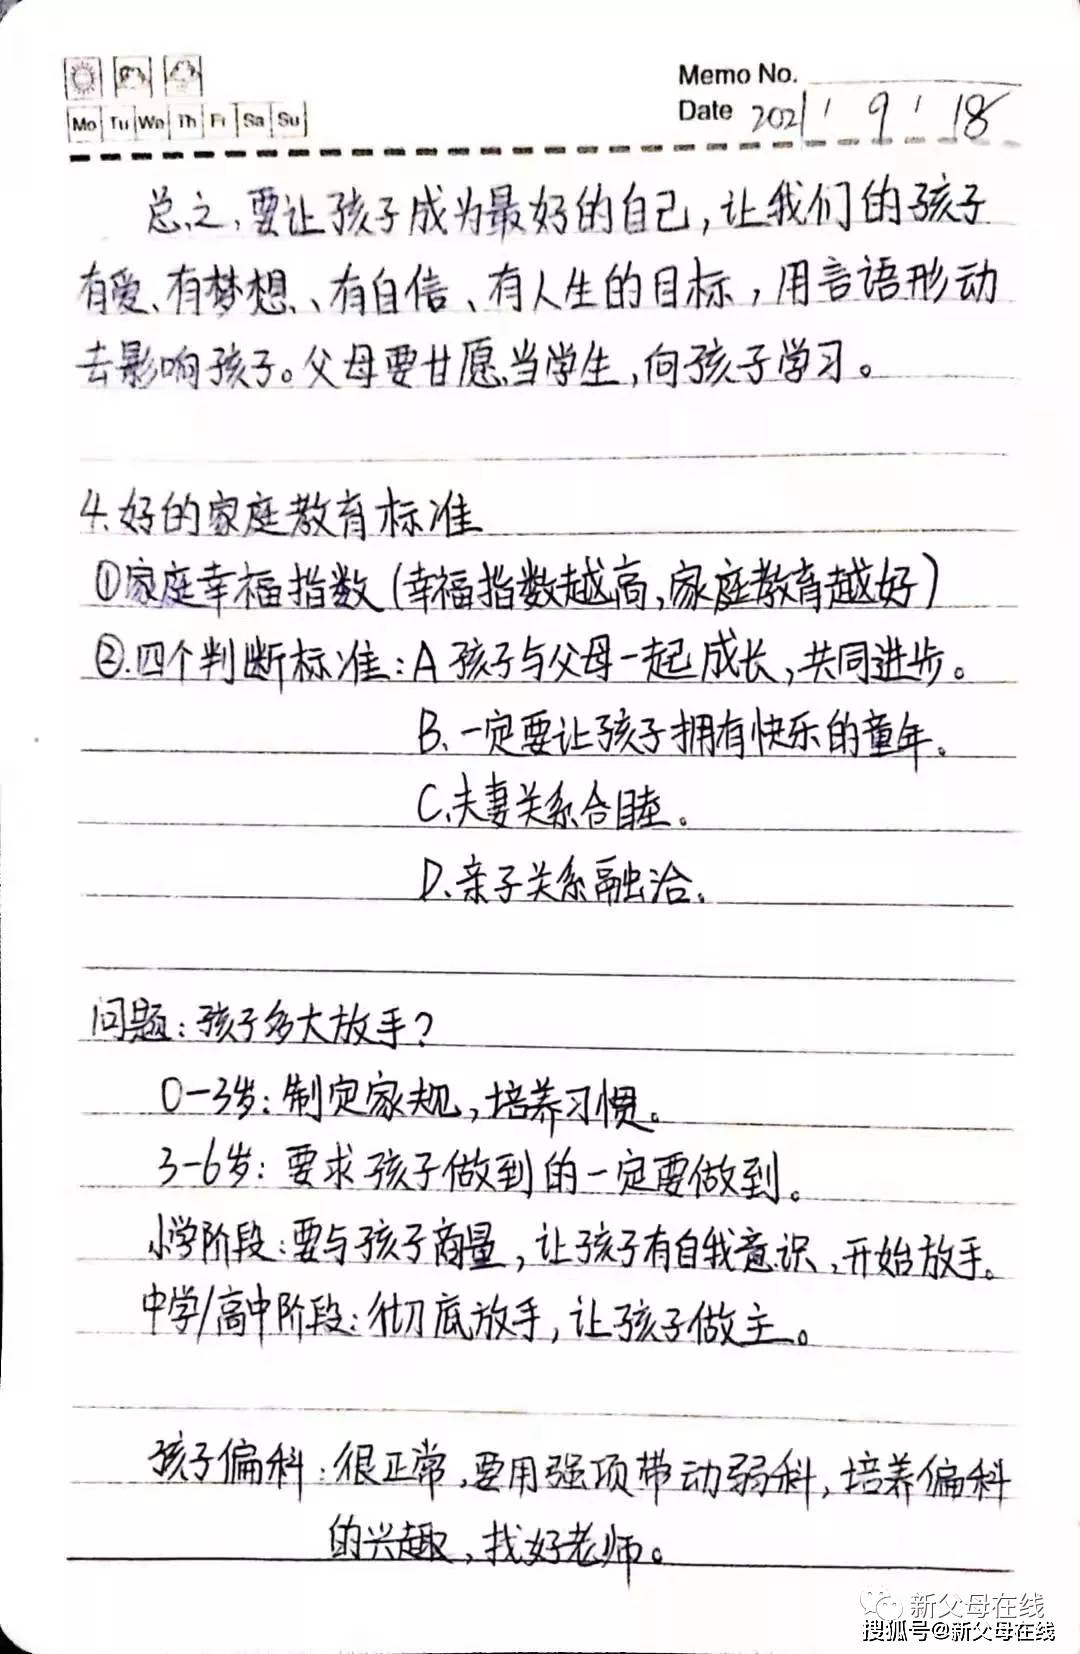 Memo No.
Mo Tu We Th Fr Sa Su
Date 2021 ' 9 ' 18
总之,要让孩子成为最好的自己,让我们的孩子
有爱、有梦想、有自信、有人生的目标,用言语形动
去影响孩子。父母要甘愿当学生,向孩子学习。
4.好的家庭教育标准
①家庭幸福指数(幸福指数越高,家庭教育越好)
②.四个判断标准:A孩子与父母一起成长,共同进步。
B、一定要让孩子拥有快乐的童年。
C、夫妻关系合睦。
D、亲子关系融洽。
问题:孩子多大放手?
0-3岁:制定家规,培养习惯。
3-6岁:要求孩子做到的一定要做到。
小学阶段:要与孩子商量,让孩子有自我意识,开始放手。
中学/高中阶段:彻底放手,让孩子做主。
孩子偏科:很正常,要用强项带动弱科,培养偏科
的兴趣,找好老师。
新父母在线
搜狐号@新父母在线